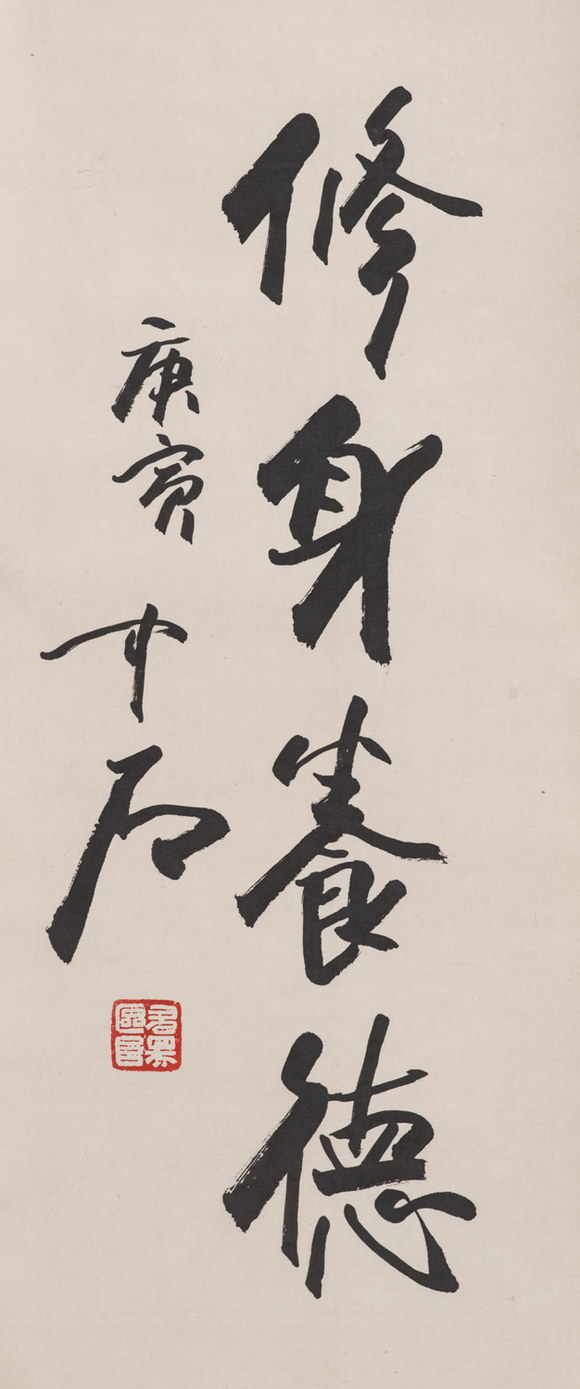 修身養德
庚寅 中石